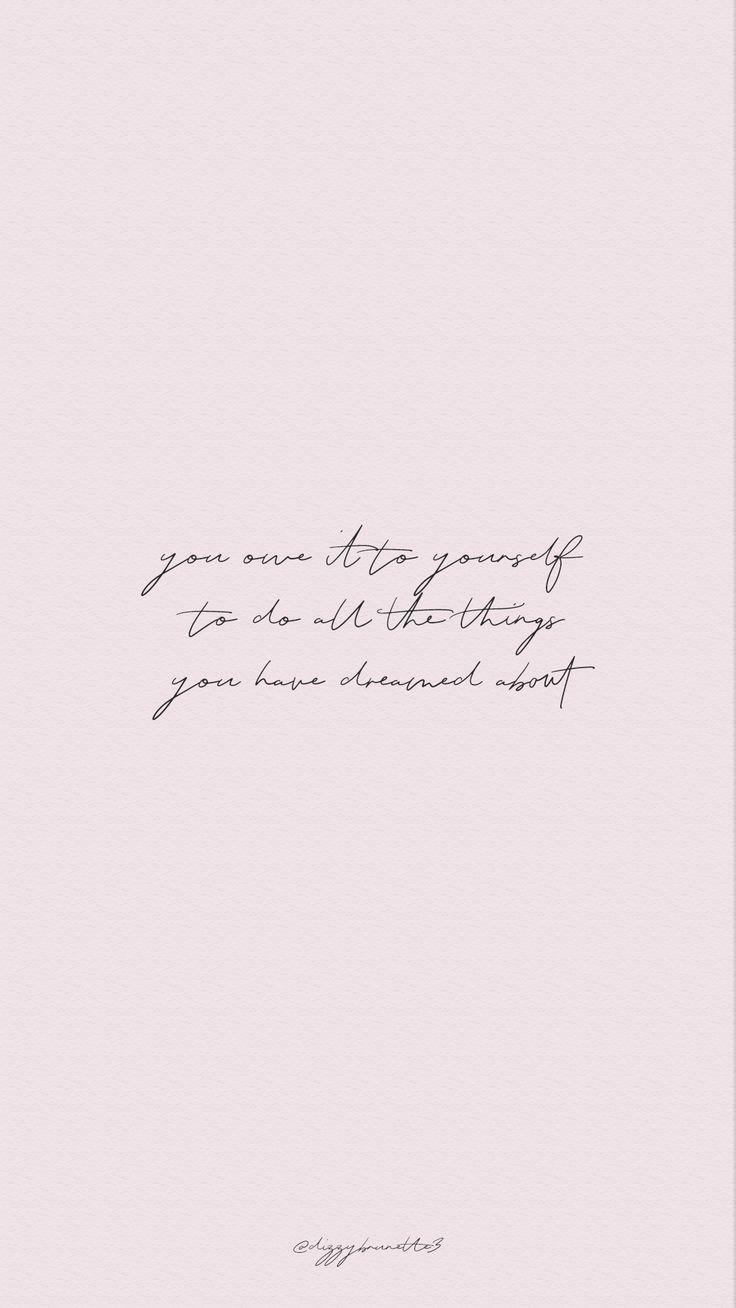 you owe it to yourself
to do all the things
you have dreamed about
@dizzybrunette3